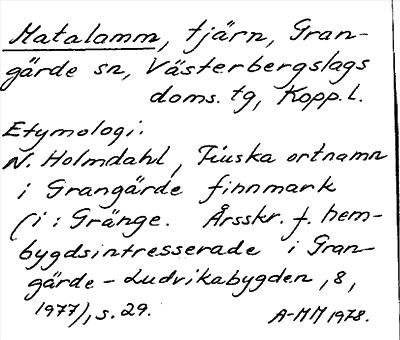 Matalamm, tjärn, Gran-
gärde sn, Västerbergslags
doms. tg, Kopp. l.
Etymologi:
N. Holmdahl, Finska ortnamn
i Grangärde finnmark
(i: Gränge. Årsskr. f. hem-
bygdsintresserade i Gran-
gärde - Ludvikabygden, 8,
1977), s. 29.
A-MH 1978.